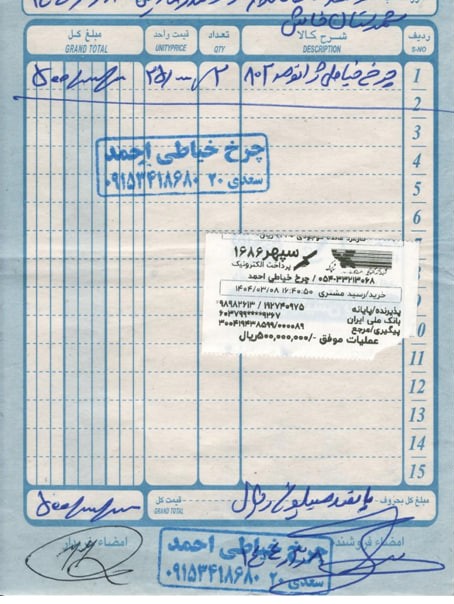 شهرستان خاش
ردیف S-NO شرح کالا DESCRIPTION تعداد QTY مبلغ واحد UNITYPRICE مبلغ کل GRAND TOTAL
1 چرخ خیاطی ژانومه ۸۰۲ ۲
2
3
4
چرخ خیاطی احمد
سعدی ۲۰ ۰۹۱۵۳۴۱۸۶۸۰
5
6
سپهر ۱۶۸۶
پرداخت الکترونیک
۰۵۴-۳۳۲۱۳۰۶۸ / چرخ خیاطی احمد
خرید/رسید مشتری ۱۶:۴۰:۵۰ ۱۴۰۴/۰۳/۰۸
پذیرنده/پایانه ۱۹۲۷۴۰۹۷۵ / ۹۸۹۸۲۶۱۳
بانک ملی ایران ۶۰۳۷۹۹******۹۳۶۷
پیگیری/مرجع ۳۰۰۴۱۹۴۳۸۵۹۹/۰۰۰۰۸۹
عملیات موفق -/۵۰۰,۰۰۰,۰۰۰ریال
10
11
12
13
14
15
مبلغ کل بحروف پانصد میلیون ریال قیمت کل GRAND TOTAL
امضاء فروشنده امضاء خریدار
چرخ خیاطی احمد
سعدی ۲۰ ۰۹۱۵۳۴۱۸۶۸۰